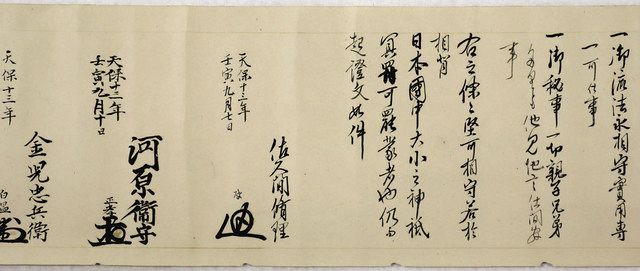 一御流法永相守實用専
一可仕事
一御秘事一切親子兄弟
たりとも他見他言仕間敷
事
右之條々堅可相守若於
相背
日本國中大小之神祇
冥罸可罷蒙者也仍而
起證文如件
天保十三年
壬寅九月七日
佐久間脩理
天保十三年
壬寅九月十日
河原衛守
天保十三年
金児忠兵衛